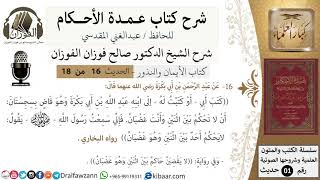 شرح كتاب عمدة الأحكام
للحافظ / عبدالغني المقدسي
شرح الشيخ الدكتور صالح فوزان الفوزان
كتاب الأيمان والنذور - الحديث 16 من 18
16- عَنْ عَبْدِ الرَّحْمَنِ بْنِ أَبِي بَكْرَةَ رضي الله عنهما قَالَ:
((كَتَبَ أَبِي - أَوْ كَتَبْتُ لَهُ - إلَى ابْنِهِ عَبْدِ اللَّهِ بْنِ أَبِي بَكْرَةَ وَهُوَ قَاضٍ بِسِجِسْتَانَ:
أَنْ لا تَحْكُمَ بَيْنَ اثْنَيْنِ وَأَنْتَ غَضْبَانُ. فَإِنِّي سَمِعْتُ رَسُولَ اللَّهِ - ﷺ - يَقُولُ:
لا يَحْكُمْ أَحَدٌ بَيْنَ اثْنَيْنِ وَهُوَ غَضْبَانُ)) رواه البخاري .
وَفِي رِوَايَةٍ: ((لا يَقْضِيَنَّ حَاكِمٌ بَيْنَ اثْنَيْنِ وَهُوَ غَضْبَانُ))
الفوزان
سلسلة الكتب والمتون
العلمية وشروحها الصوتية
رقم 01 حديث
Dralfawzann
kibaar.com